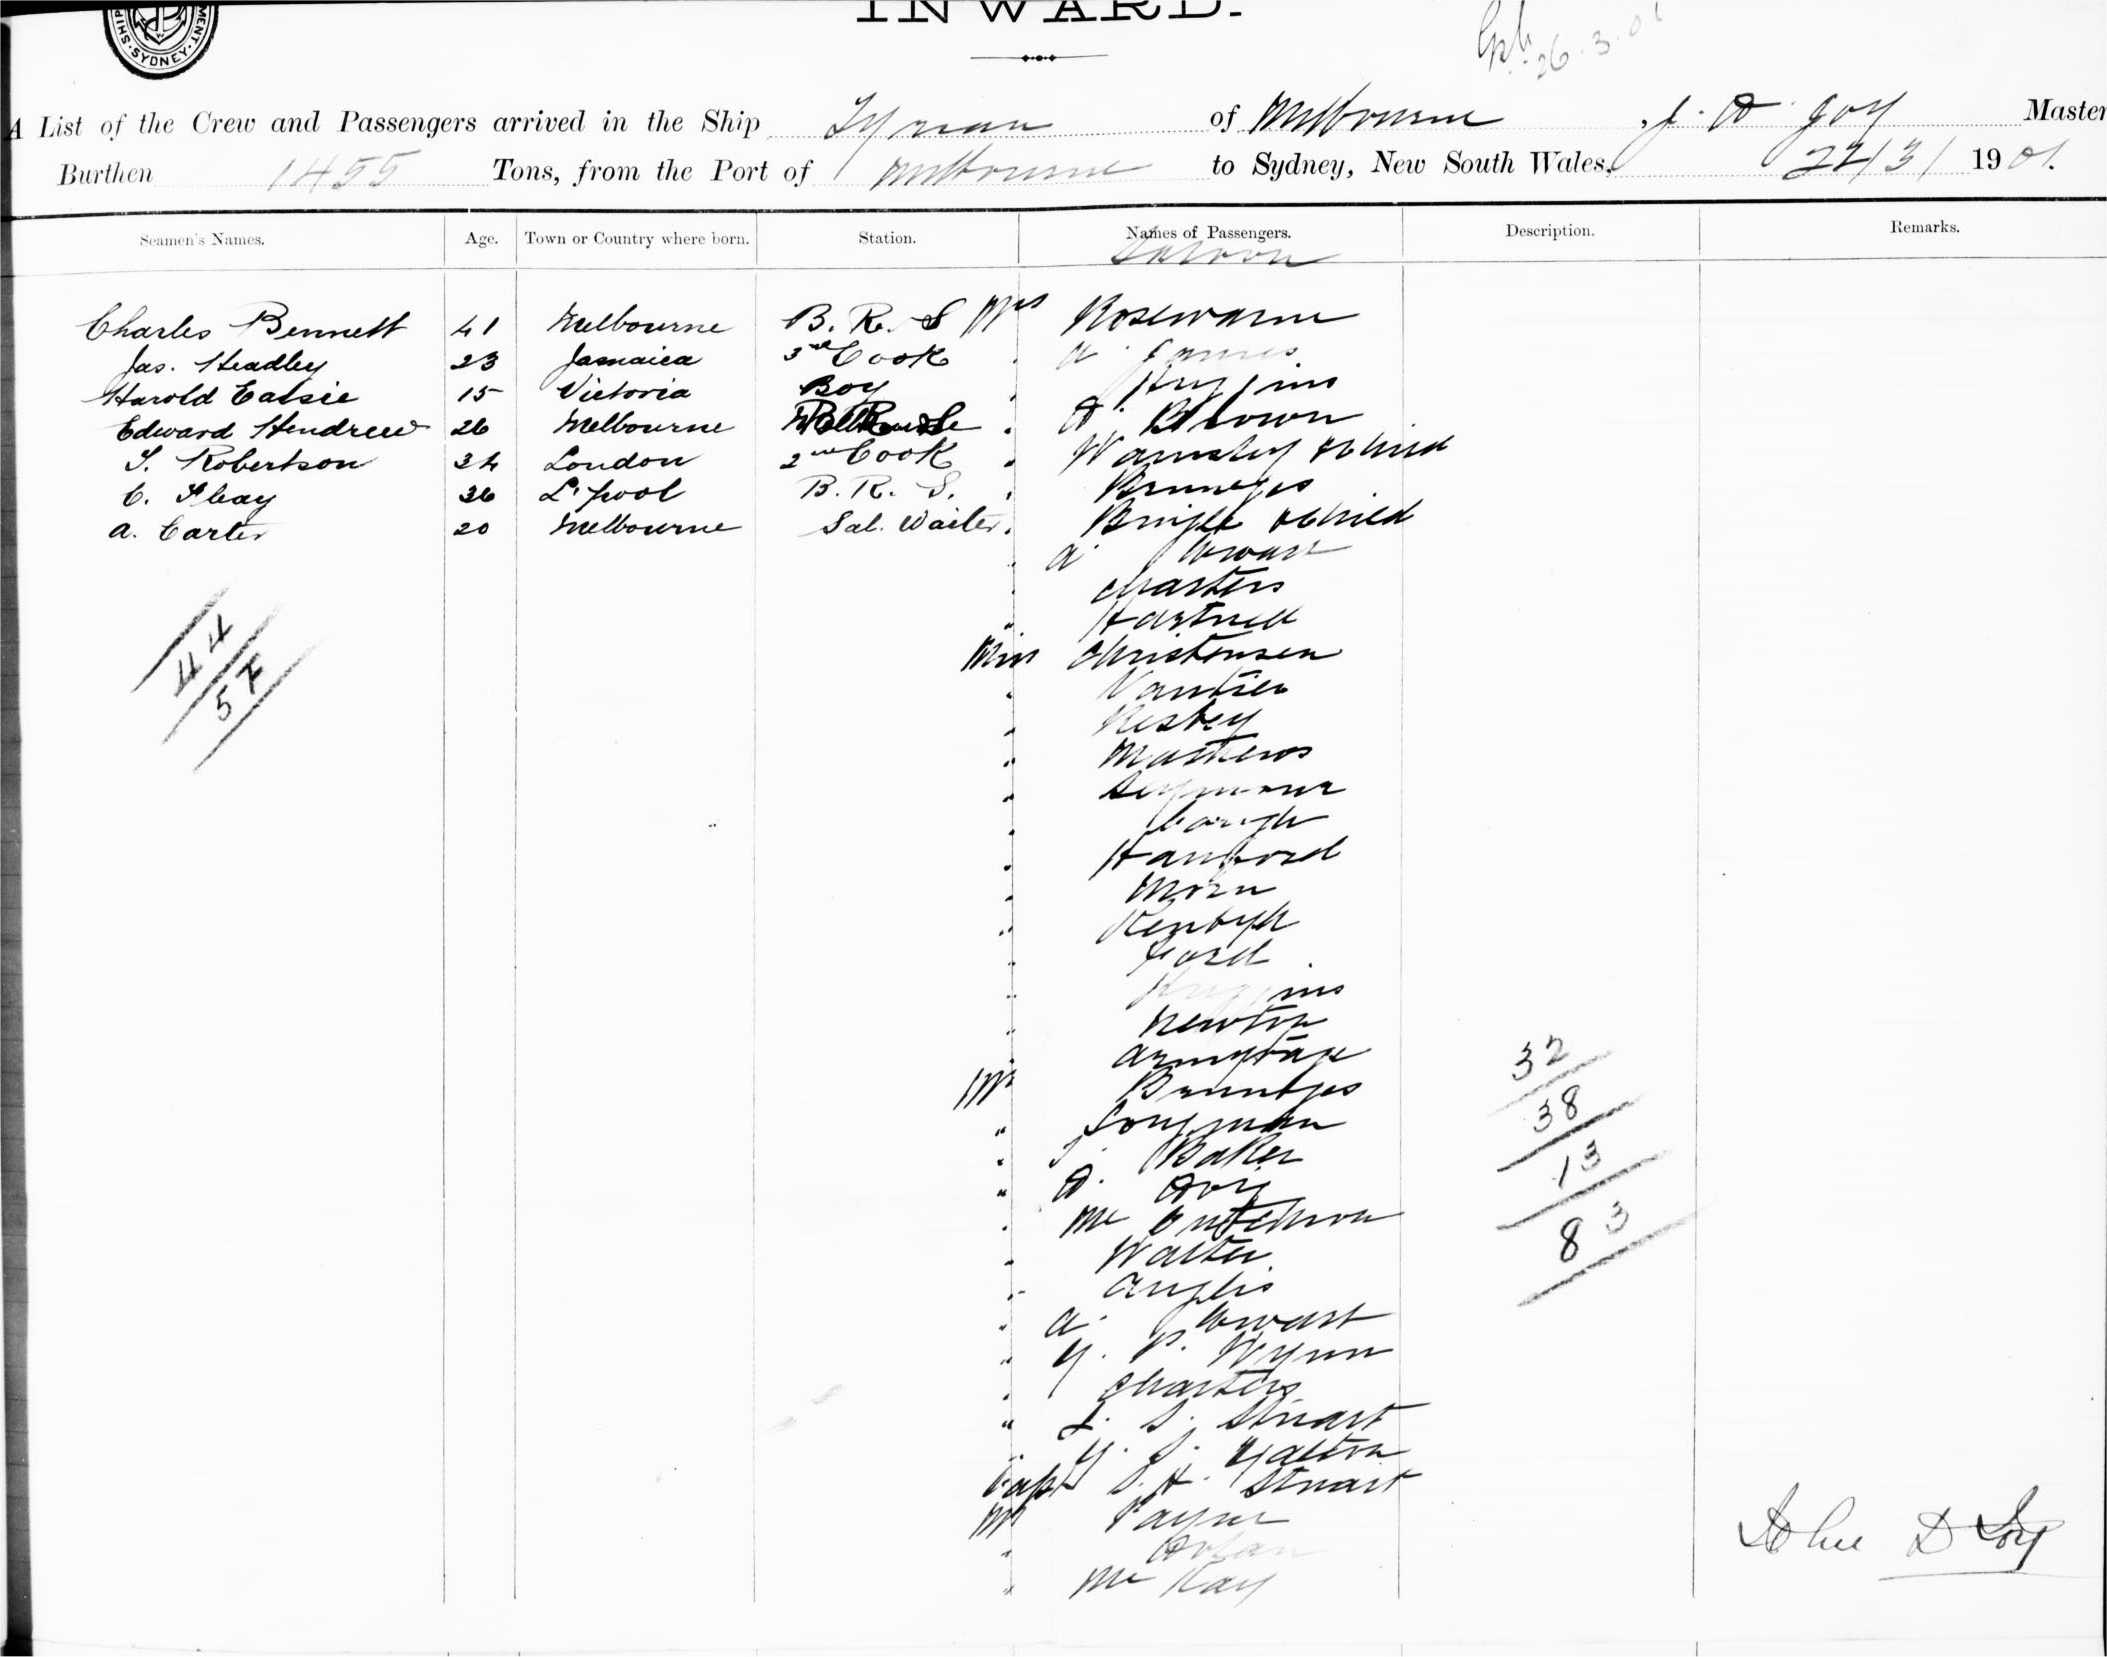 INWARD.
26.3.01
A List of the Crew and Passengers arrived in the Ship Tyrian of Melbourne, J. D. Joy Master
Burthen 1455 Tons, from the Port of Melbourne to Sydney, New South Wales, 22/3/1901.
Seamen's Names. Age. Town or Country where born. Station. Names of Passengers. Description. Remarks.
Saloon
Charles Bennett 41 Melbourne B. R. S Mrs Rosewarne
Jas. Headley 23 Jamaica 3rd Cook " A. James
Harold Eatsie 15 Victoria Boy " Huggins
Edward Hendrew 26 Melbourne " D. Brown
S. Robertson 34 London 2nd Cook " Wamsley & child
C. Fleay 36 L'pool B. R. S. "
A. Carter 20 Melbourne Sal. Waiter " Bright & child
" A. Cowan
" Charters
" Hartnell
Miss Christensen
" Vautier
" Resbey
" Matthews
" Seymour
" Gough
" Hanford
"
"
" Ford
" Huggins
" Newton
" Armytage
Mr Bruntjes
" Longman
" Baker
" D.
" McCutcheon
" Walter
" Anglis
" A. Cowan
" G. P. Wynn
" Charters
" L. S. Stuart
" G. S. Yalton
Capt S. H. Stuart
Mr Payne
" Dolan
" McKay
44
57
32
38
13
83
John D Joy